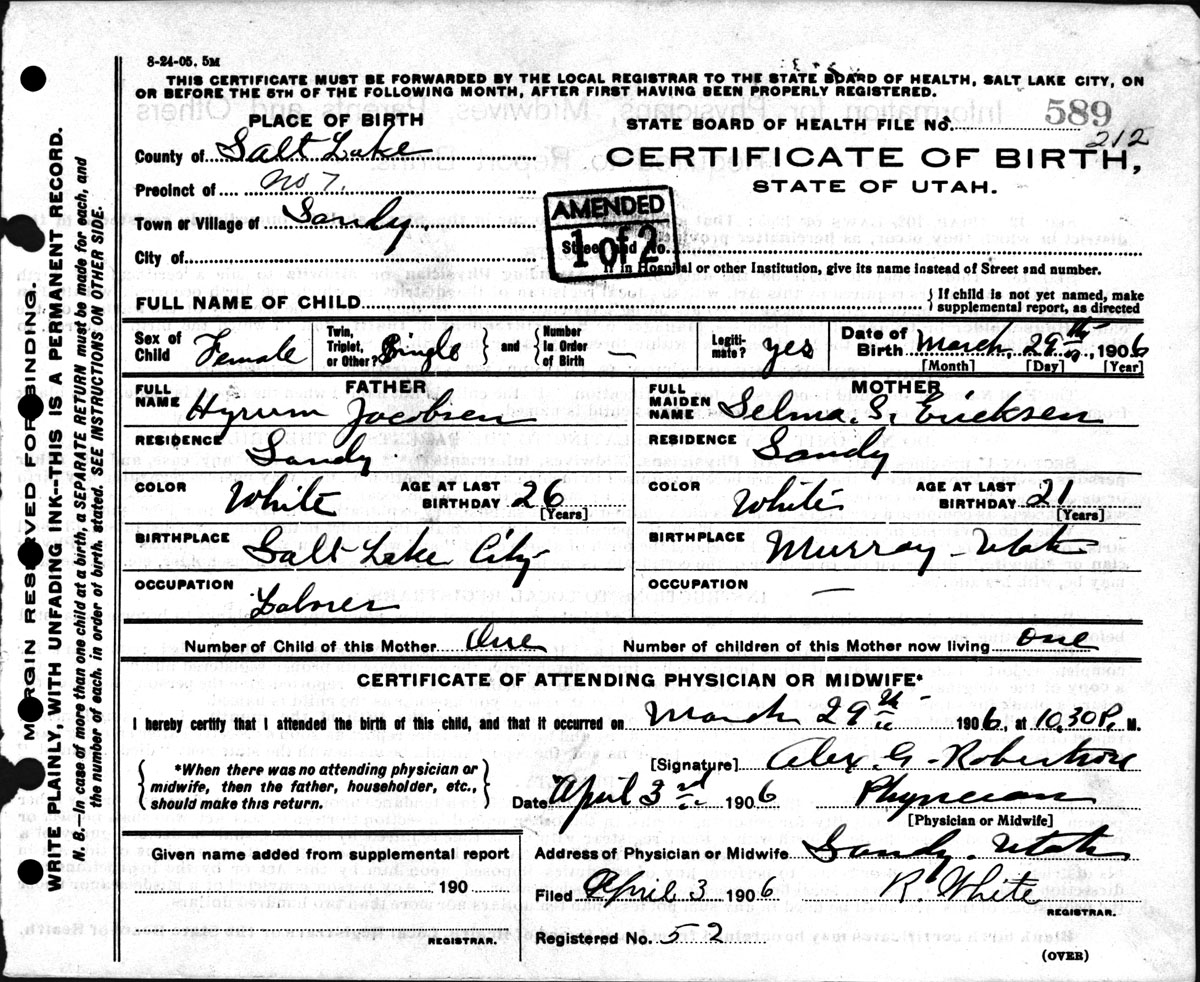 8-24-05. 5M
THIS CERTIFICATE MUST BE FORWARDED BY THE LOCAL REGISTRAR TO THE STATE BOARD OF HEALTH, SALT LAKE CITY, ON
OR BEFORE THE 5TH OF THE FOLLOWING MONTH, AFTER FIRST HAVING BEEN PROPERLY REGISTERED.
PLACE OF BIRTH
STATE BOARD OF HEALTH FILE No. 589
212
County of Salt Lake
CERTIFICATE OF BIRTH,
STATE OF UTAH.
Precinct of No 7.
Town or Village of Sandy.
AMENDED
1 of 2
Street and No.
City of
If in Hospital or other Institution, give its name instead of Street and number.
FULL NAME OF CHILD
If child is not yet named, make
supplemental report, as directed
Sex of Child Female
Twin, Triplet, or Other? Single
and Number In Order of Birth —
Legitimate? yes
Date of Birth March 29th 1906
[Month] [Day] [Year]
FATHER
FULL NAME Hyrum Jacobsen
RESIDENCE Sandy
COLOR White AGE AT LAST BIRTHDAY 26
[Years]
BIRTHPLACE Salt Lake City
OCCUPATION Laborer
MOTHER
FULL MAIDEN NAME Selma. S. Ericksen
RESIDENCE Sandy
COLOR White AGE AT LAST BIRTHDAY 21
[Years]
BIRTHPLACE Murray - Utah
OCCUPATION —
Number of Child of this Mother One Number of children of this Mother now living one
CERTIFICATE OF ATTENDING PHYSICIAN OR MIDWIFE*
I hereby certify that I attended the birth of this child, and that it occurred on March 29th 1906, at 10.30 P. M.
*When there was no attending physician or
midwife, then the father, householder, etc.,
should make this return.
[Signature] Alex. G. Robertson
Date April 3rd 1906 Physician
[Physician or Midwife]
Given name added from supplemental report
190
REGISTRAR.
Address of Physician or Midwife Sandy. Utah
Filed April 3 1906 R. White
REGISTRAR.
Registered No. 52
(OVER)
MARGIN RESERVED FOR BINDING.
WRITE PLAINLY, WITH UNFADING INK--THIS IS A PERMANENT RECORD.
N. B.—In case of more than one child at a birth, a SEPARATE RETURN must be made for each, and
the number of each, in order of birth, stated. SEE INSTRUCTIONS ON OTHER SIDE.